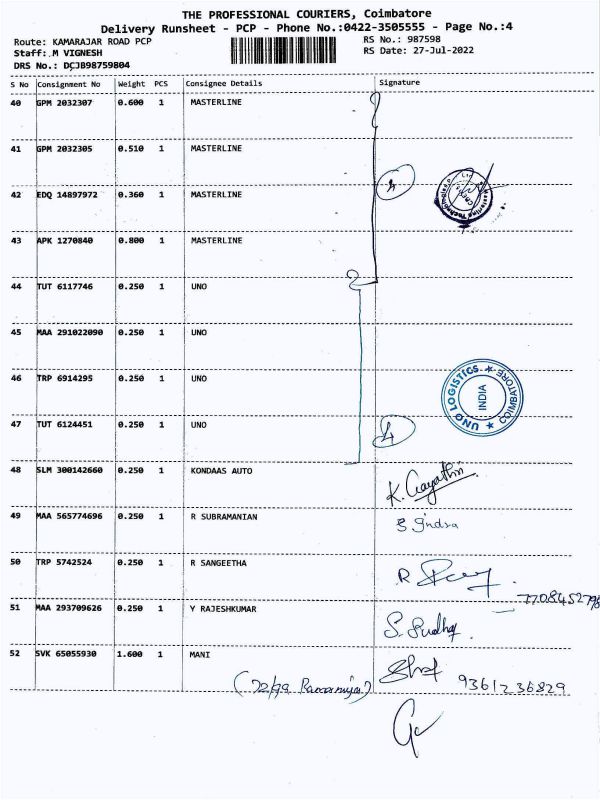 THE PROFESSIONAL COURIERS, Coimbatore
Delivery Runsheet - PCP - Phone No.:0422-3505555 - Page No.:4
Route: KAMARAJAR ROAD PCP
RS No.: 987598
Staff: M VIGNESH
RS Date: 27-Jul-2022
DRS No.: DCJB98759804
S No Consignment No Weight PCS Consignee Details Signature
40 GPM 2032307 0.600 1 MASTERLINE
41 GPM 2032305 0.510 1 MASTERLINE
42 EDQ 14897972 0.360 1 MASTERLINE
4
43 APK 1270840 0.800 1 MASTERLINE
44 TUT 6117746 0.250 1 UNO
45 MAA 291022090 0.250 1 UNO
46 TRP 6914295 0.250 1 UNO
UNO LOGISTICS ★ COIMBATORE ★
INDIA
47 TUT 6124451 0.250 1 UNO
4
48 SLM 300142660 0.250 1 KONDAAS AUTO
K. Gayathri
49 MAA 565774696 0.250 1 R SUBRAMANIAN
50 TRP 5742524 0.250 1 R SANGEETHA
R
51 MAA 293709626 0.250 1 Y RAJESHKUMAR
52 SVK 65055930 1.600 1 MANI
9361236829